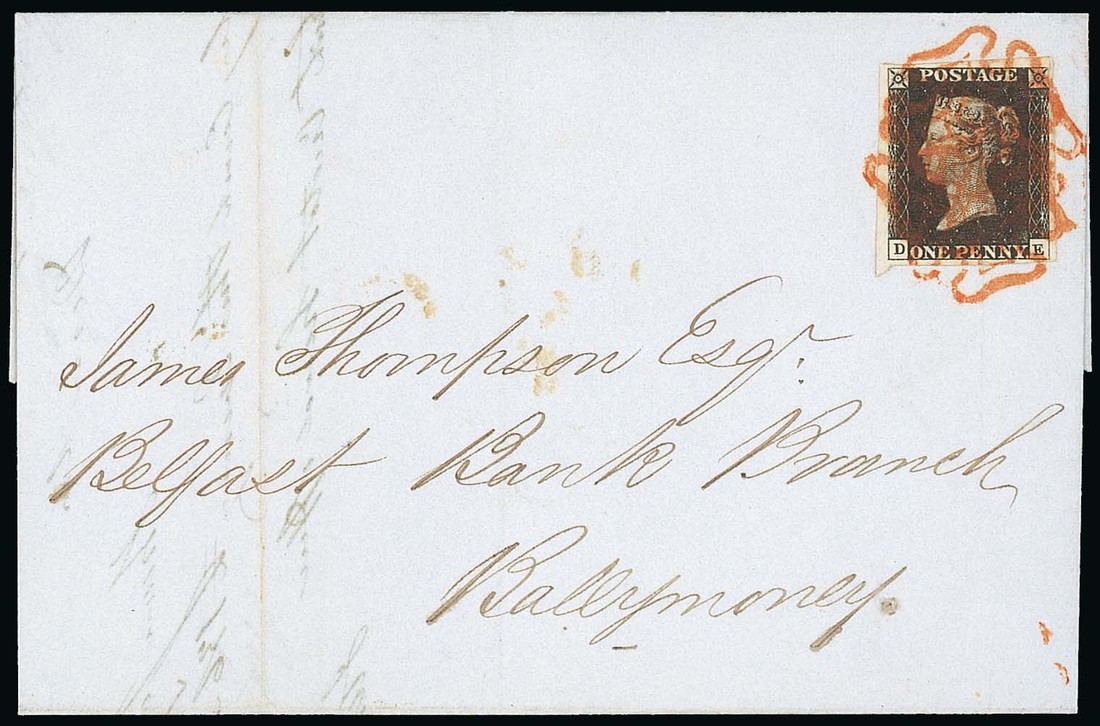 POSTAGE
D ONE PENNY. E
James Thompson Esqr.
Belfast Bank Branch
Ballymoney.